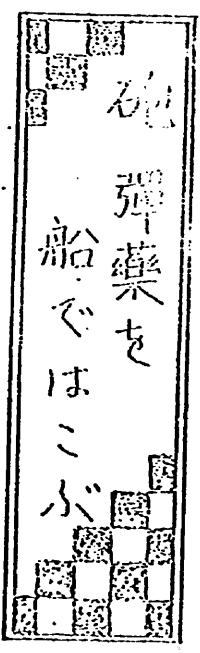 砲彈藥を
船ではこぶ